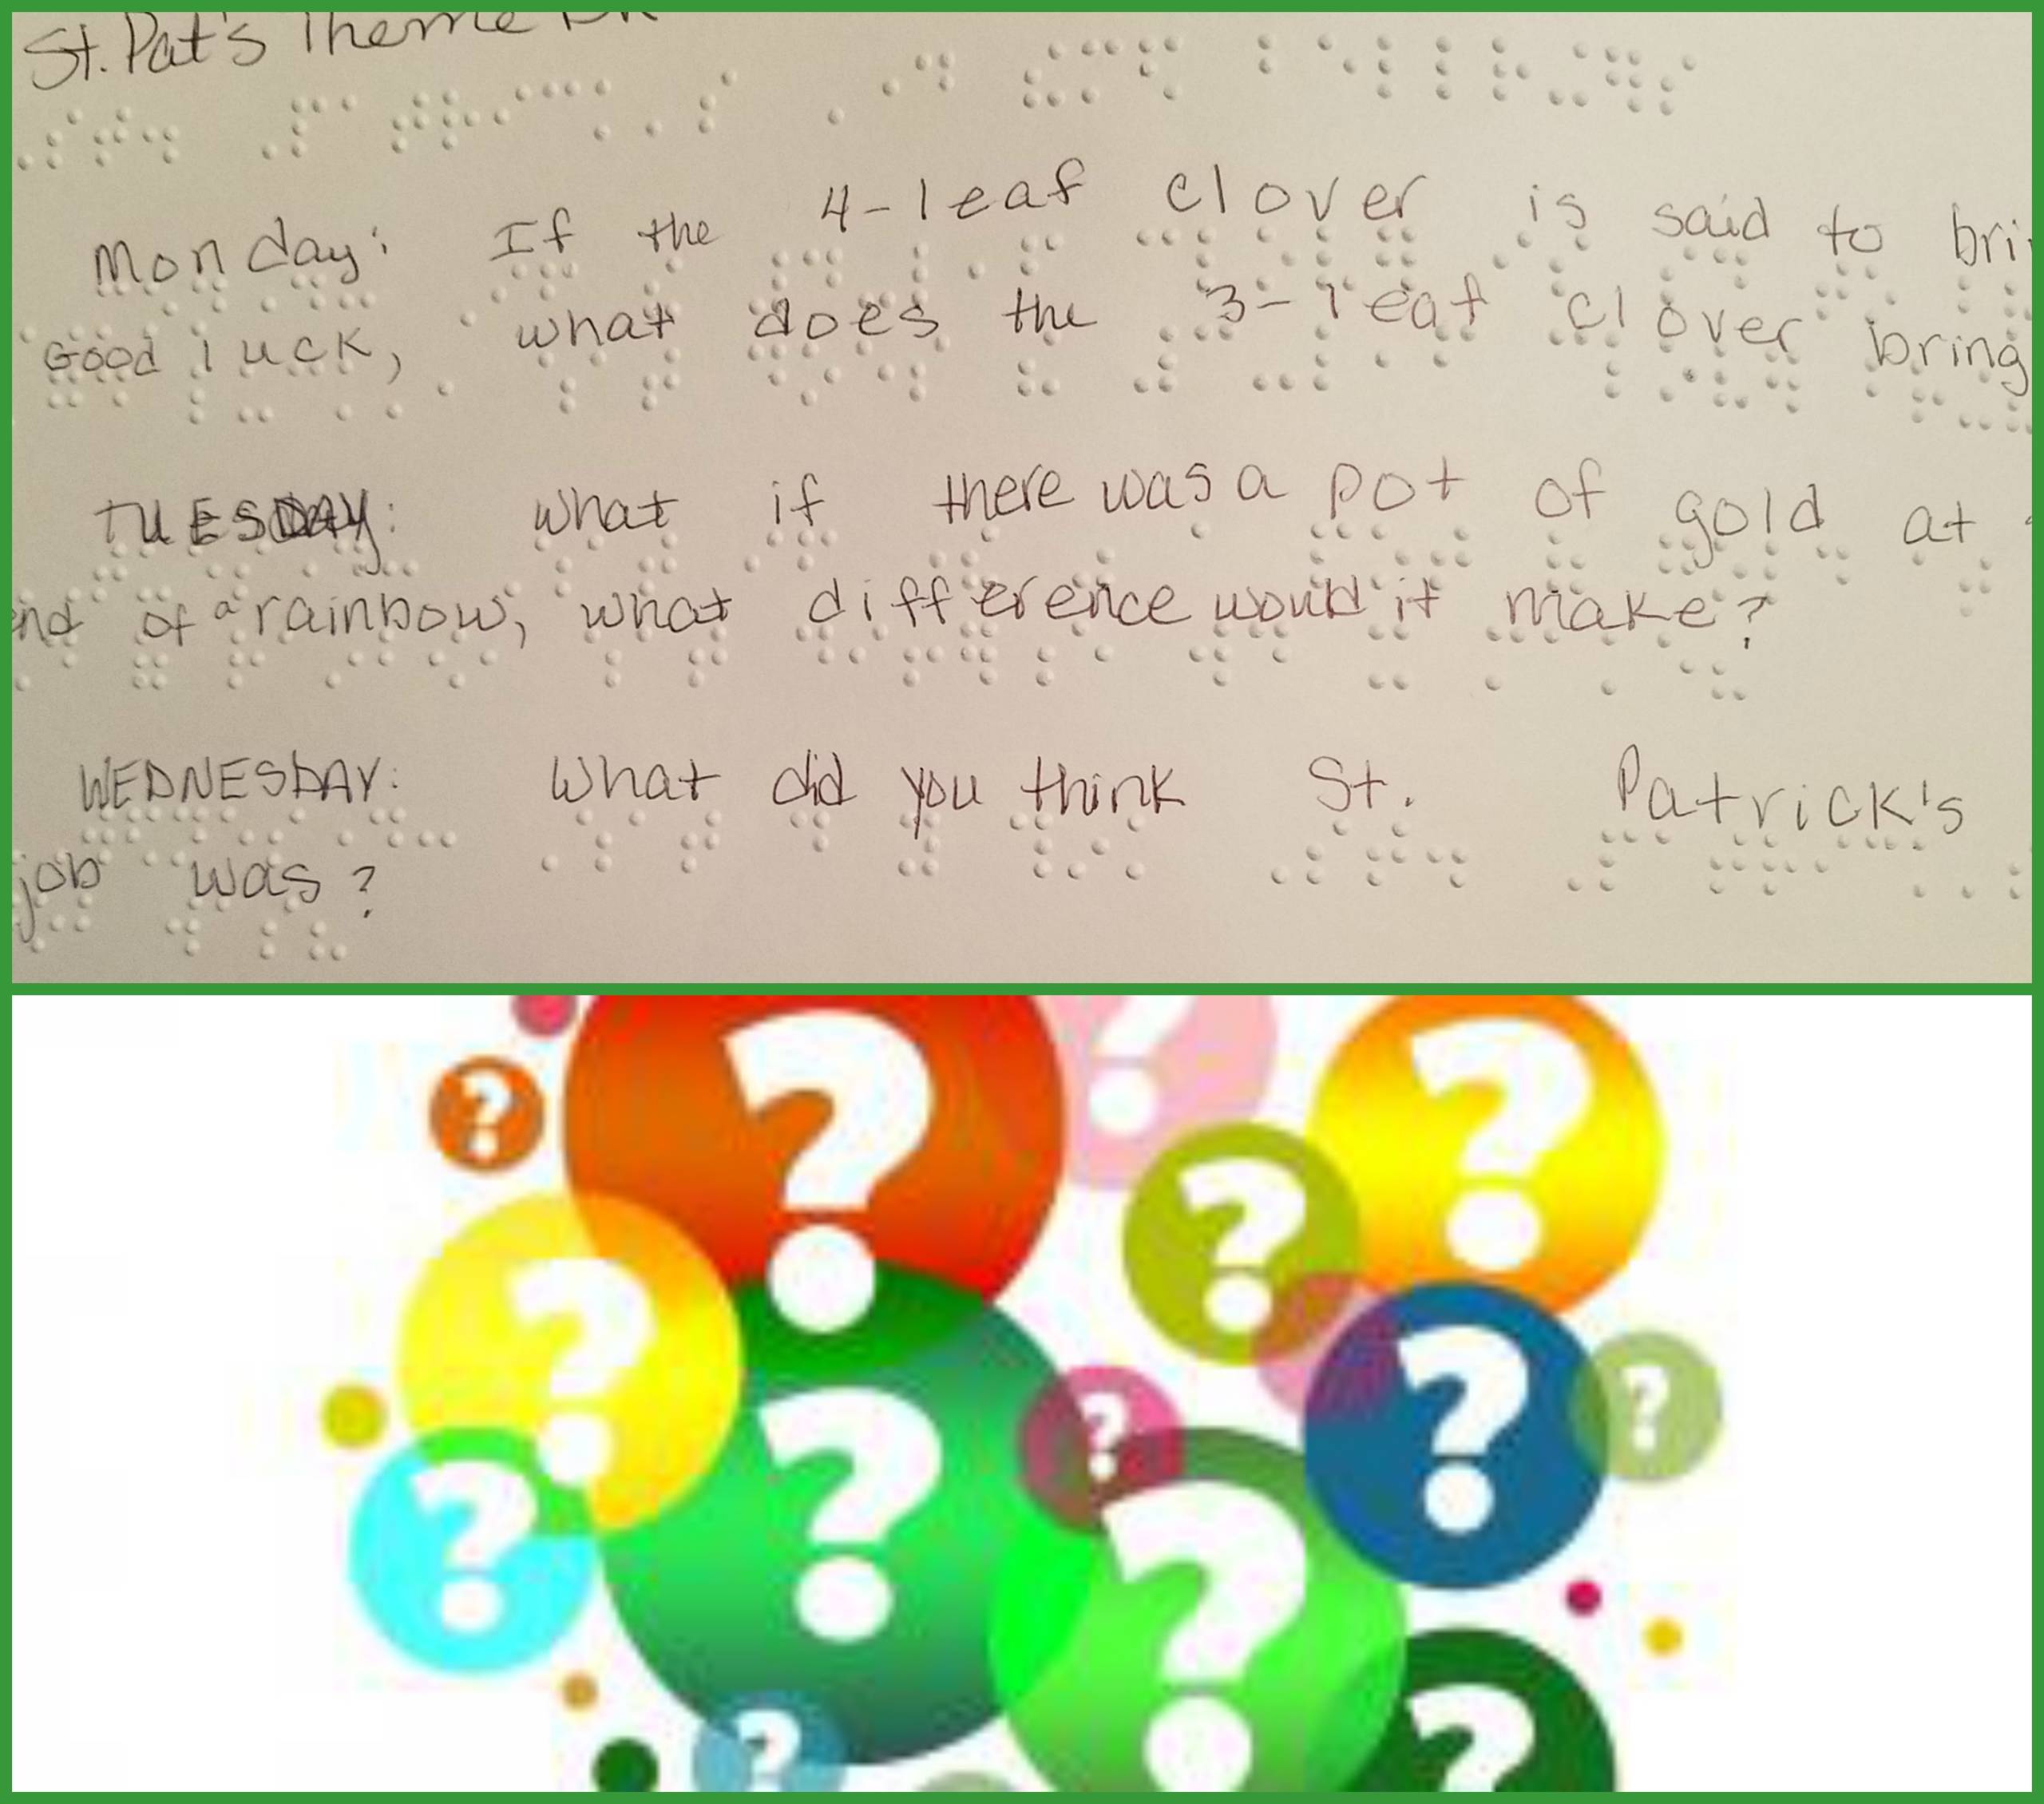 St. Pat's Theme
Monday: If the 4-leaf clover is said to
Good luck, what does the 3-leaf clover bring
TUESDAY: what if there was a pot of gold at
end of a rainbow, what difference would it make?
WEDNESDAY: What did you think St. Patrick's
job was?
? ? ? ? ? ? ? ? ? ? ? ? ?